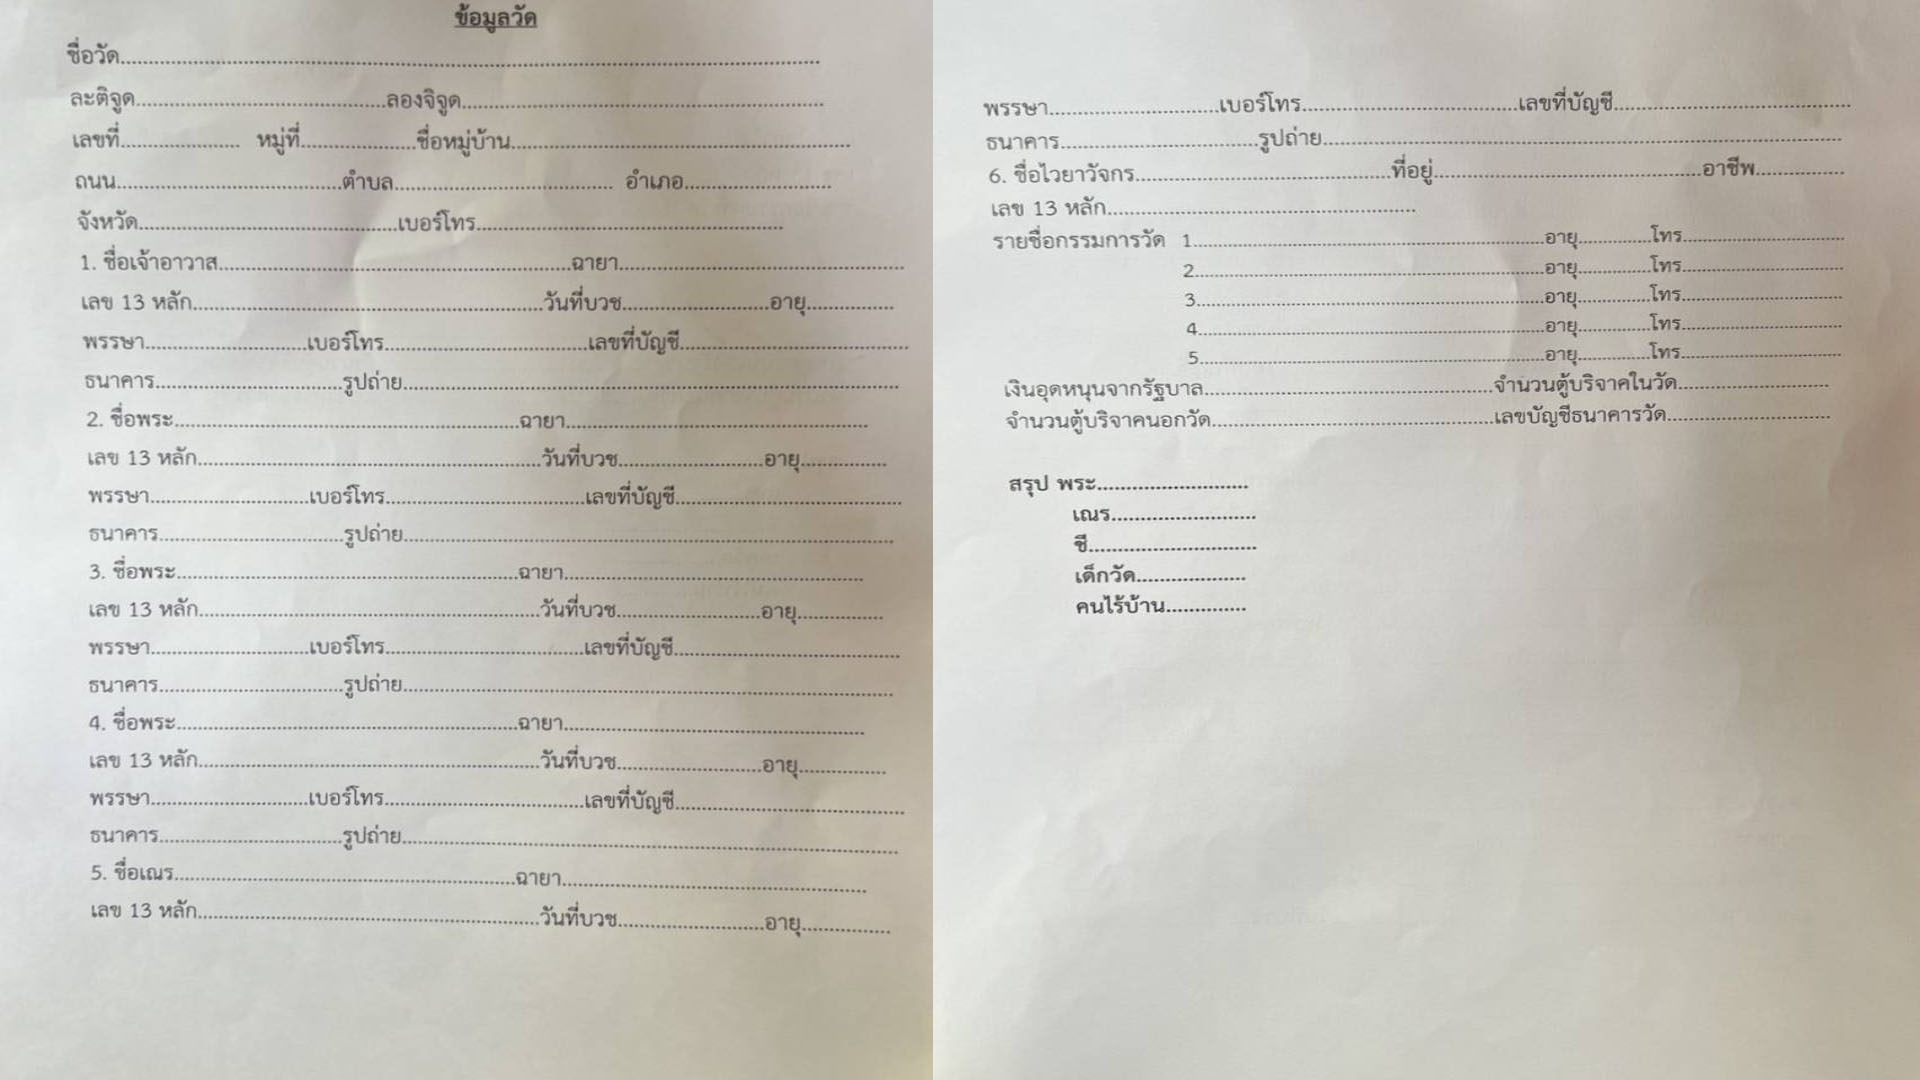 ข้อมูลวัด
ชื่อวัด....................................................................................................
ละติจูด........................................ลองจิจูด........................................................
เลขที่.................... หมู่ที่....................ชื่อหมู่บ้าน........................................................
ถนน........................................ตำบล........................................ อำเภอ..........................
จังหวัด........................................เบอร์โทร........................................................
1. ชื่อเจ้าอาวาส............................................................ฉายา..................................................
เลข 13 หลัก............................................................วันที่บวช..........................อายุ................
พรรษา............................เบอร์โทร....................................เลขที่บัญชี........................................
ธนาคาร................................รูปถ่าย..........................................................................
2. ชื่อพระ............................................................ฉายา....................................................
เลข 13 หลัก............................................................วันที่บวช..........................อายุ................
พรรษา............................เบอร์โทร....................................เลขที่บัญชี........................................
ธนาคาร................................รูปถ่าย..........................................................................
3. ชื่อพระ............................................................ฉายา....................................................
เลข 13 หลัก............................................................วันที่บวช..........................อายุ................
พรรษา............................เบอร์โทร....................................เลขที่บัญชี........................................
ธนาคาร................................รูปถ่าย..........................................................................
4. ชื่อพระ............................................................ฉายา....................................................
เลข 13 หลัก............................................................วันที่บวช..........................อายุ................
พรรษา............................เบอร์โทร....................................เลขที่บัญชี........................................
ธนาคาร................................รูปถ่าย..........................................................................
5. ชื่อเณร............................................................ฉายา....................................................
เลข 13 หลัก............................................................วันที่บวช..........................อายุ................
พรรษา............................เบอร์โทร....................................เลขที่บัญชี........................................
ธนาคาร................................รูปถ่าย..........................................................................
6. ชื่อไวยาวัจกร............................................ที่อยู่..............................................อาชีพ................
เลข 13 หลัก......................................................
รายชื่อกรรมการวัด 1............................................................อายุ.............โทร............................
2............................................................อายุ.............โทร............................
3............................................................อายุ.............โทร............................
4............................................................อายุ.............โทร............................
5............................................................อายุ.............โทร............................
เงินอุดหนุนจากรัฐบาล..................................................จำนวนตู้บริจาคในวัด..........................
จำนวนตู้บริจาคนอกวัด..................................................เลขบัญชีธนาคารวัด............................
สรุป พระ..........................
เณร.........................
ชี.............................
เด็กวัด...................
คนไร้บ้าน..............